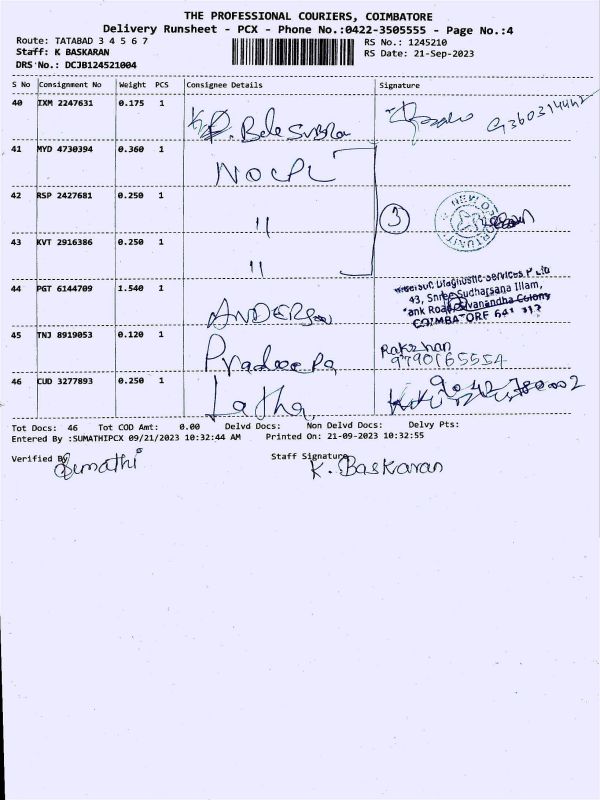 THE PROFESSIONAL COURIERS, COIMBATORE
Delivery Runsheet - PCX - Phone No.:0422-3505555 - Page No.:4
Route: TATABAD 3 4 5 6 7
RS No.: 1245210
Staff: K BASKARAN
RS Date: 21-Sep-2023
DRS No.: DCJB124521004
S No Consignment No Weight PCS Consignee Details Signature
40 IXM 2247631 0.175 1
41 MYD 4730394 0.360 1 NOCPL
42 RSP 2427681 0.250 1 "
3
43 KVT 2916386 0.250 1 "
44 PGT 6144709 1.540 1 ANDERSON
Diagnostic Services P Ltd
43, Shree Sudharsana Illam,
Colony
COIMBATORE 641
45 TNJ 8919053 0.120 1 Pradeepa
Rakshan
9790165554
46 CUD 3277893 0.250 1 Latha
Tot Docs: 46 Tot COD Amt: 0.00 Delvd Docs: Non Delvd Docs: Delvy Pts:
Entered By :SUMATHIPCX 09/21/2023 10:32:44 AM Printed On: 21-09-2023 10:32:55
Verified By Sumathi
Staff Signature K. Baskaran